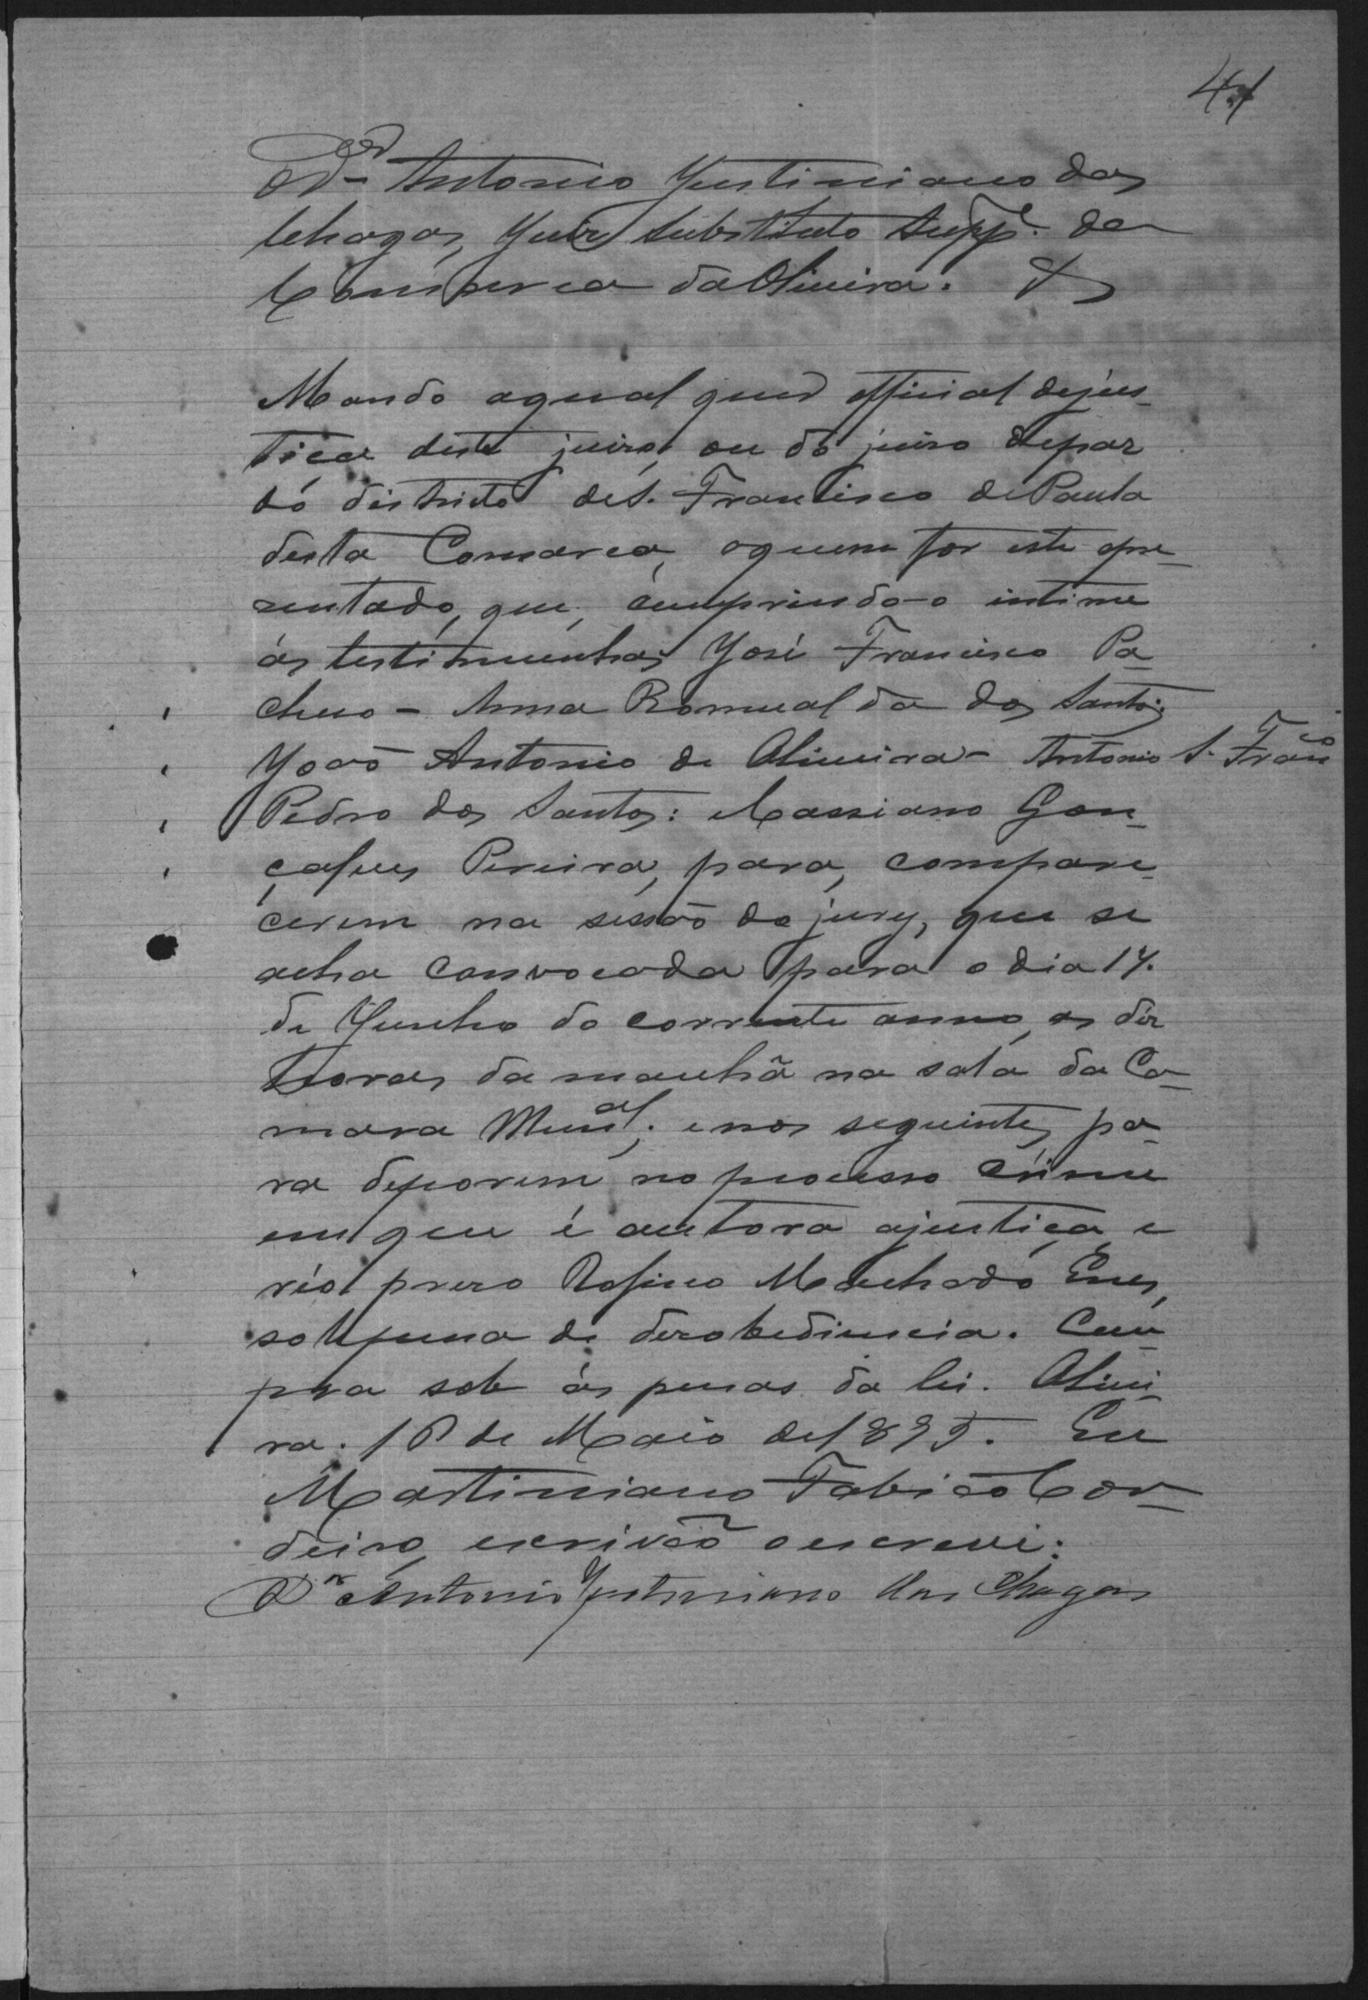 41
O Dr. Antonio Justiniano das
Chagas, Juiz substituto Suppe. da
Comarca da Oliveira. &
Mando aqual quer official dejus-
tiça deste juizo, ou do juizo depaz
do districto de S. Francisco de Paula
desta Comarca, aquem for este apre-
zentado, que, cumprindo-o intime
ás testimunhas José Francisco Pa-
checo - Anna Romualda dos Santos
João Antonio de Oliveira - Antonio S. Franco
Pedro dos Santos: Cassiano Gon-
çalves Pereira, para, compare-
cerem na sessão do jury, que se
acha convocada para o dia 14.
de Junho do corrente anno, as dez
horas da manhã na sala da Ca-
mara Munal; e nos seguintes, pa-
ra deporem no processo crime
em que é autora ajustiça, e
réo prezo Rofino Machado Eues,
sob pena de dezobediencia. Cum-
pra sob ás penas da lei. Olivei-
ra. 18 de Maio de 1895. Eu
Martiniano Fabião Cor-
deiro, escrivão o escrevi:
Dr. Antonio Justiniano das Chagas